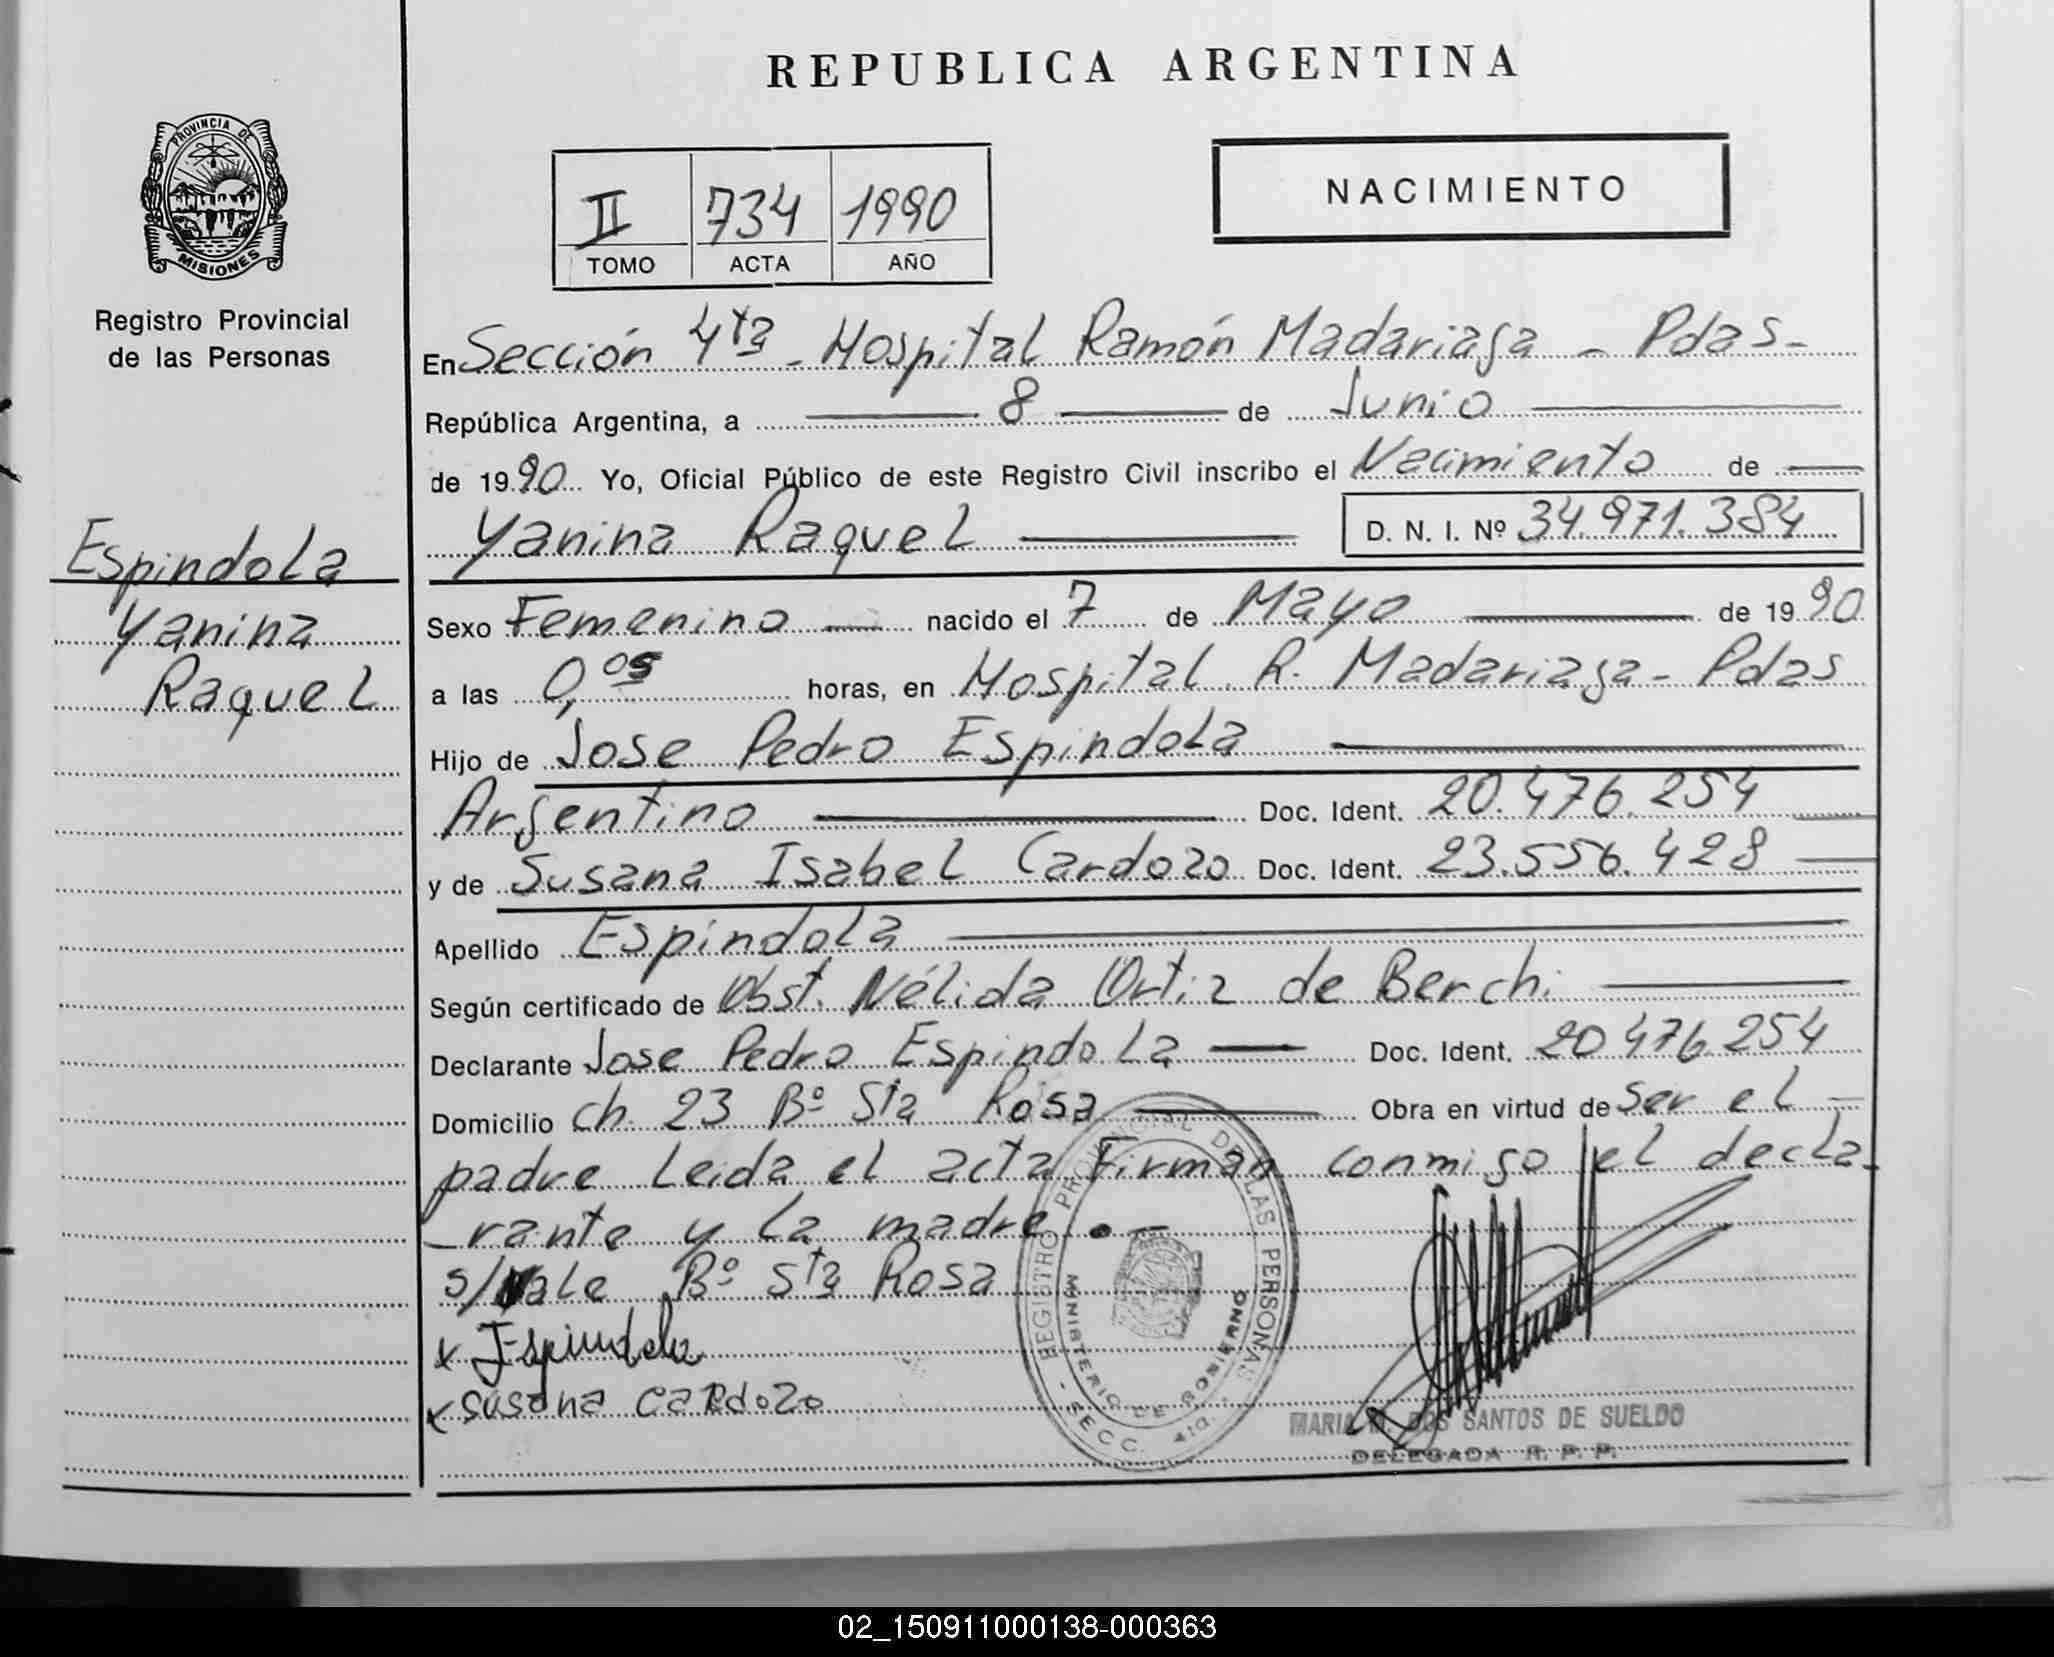 REPUBLICA ARGENTINA
PROVINCIA DE
MISIONES
Registro Provincial
de las Personas
II 734 1990
TOMO ACTA AÑO
NACIMIENTO
En Sección 4ta - Hospital Ramón Madariaga - Pdas -
República Argentina, a 8 de Junio
de 1990 Yo, Oficial Público de este Registro Civil inscribo el Nacimiento de
Yanina Raquel D. N. I. Nº 34.971.384
Espindola
Yanina
Raquel
Sexo Femenino nacido el 7 de Mayo de 1990
a las 0,05 horas, en Hospital R. Madariaga - Pdas
Hijo de Jose Pedro Espindola
Argentino Doc. Ident. 20.476.254
y de Susana Isabel Cardozo Doc. Ident. 23.556.428
Apellido Espindola
Según certificado de Obst. Nélida Ortiz de Berchi
Declarante Jose Pedro Espindola Doc. Ident. 20 476 254
Domicilio ch. 23 Bº Sta Rosa Obra en virtud de ser el
padre Leida el acta Firman conmigo el decla-
rante y la madre.-
s/vale Bº Sta Rosa
x J Espindola
x susana cardozo
REGISTRO PROVINCIAL DE LAS PERSONAS
MINISTERIO DE GOBIERNO
- SECC. 4ta.
MARIA M. DOS SANTOS DE SUELDO
DELEGADA R. P. P.
02_150911000138-000363